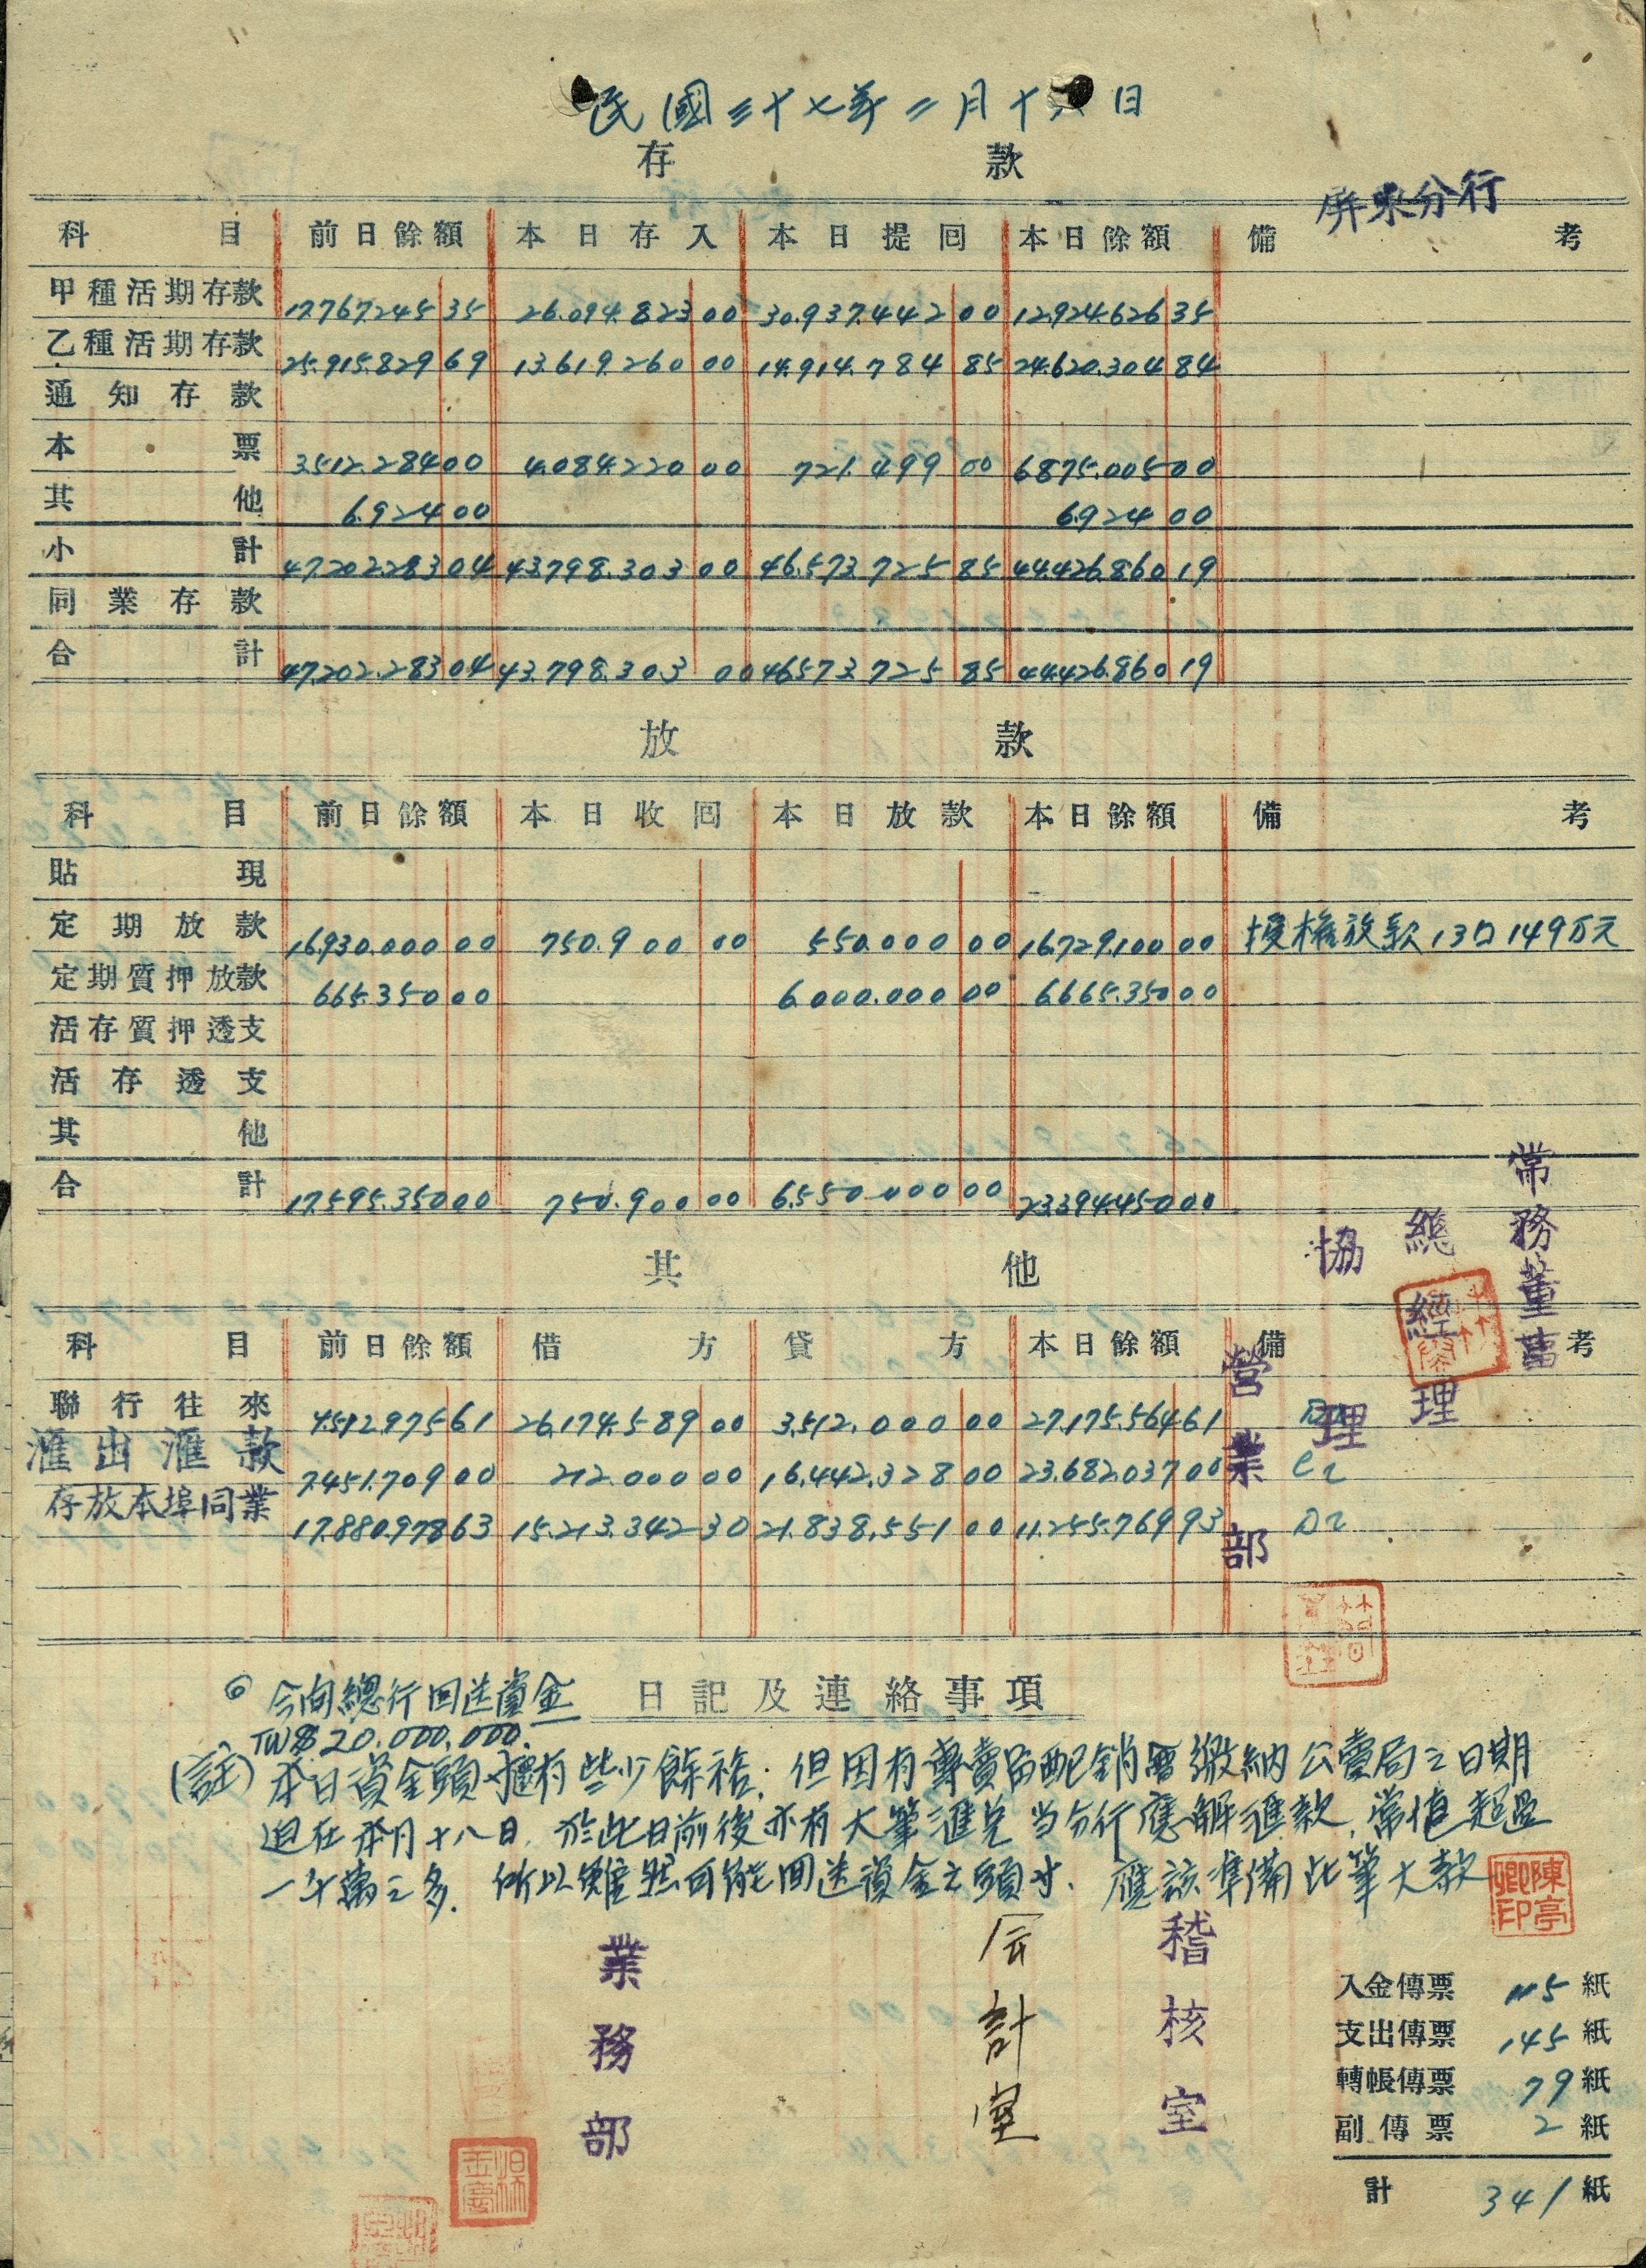 民國三十七年二月十六日
存款
屏東分行
科目 前日餘額 本日存入 本日提回 本日餘額 備考
甲種活期存款 17.767.245 35 26.094.823 00 30.937.442 00 12.924.626 35
乙種活期存款 25.915.829 69 13.619.260 00 14.914.784 85 24.620.304 84
通知存款
本票 3.512.284 00 4.084.220 00 721.499 00 6.875.005 00
其他 6.924 00 6.924 00
小計 47.202.283 04 43.798.303 00 46.573.725 85 44.426.860 19
同業存款
合計 47.202.283 04 43.798.303 00 46.573.725 85 44.426.860 19
放款
科目 前日餘額 本日收回 本日放款 本日餘額 備考
貼現
定期放款 16.930.000 00 750.900 00 550.000 00 16.729.100 00 授權放款13口149万元
定期質押放款 665.350 00 6.000.000 00 6.665.350 00
活存質押透支
活存透支
其他
合計 17.595.350 00 750.900 00 6.550.000 00 23.394.450 00
常務董事
總經理
協理
其他
科目 前日餘額 借方 貸方 本日餘額 備考
聯行往來 4.512.975 61 26.174.589 00 3.512.000 00 27.175.564 61 Dr
滙出滙款 7.451.709 00 212.000 00 16.442.328 00 23.682.037 00 Cr
存放本埠同業 17.880.978 63 15.213.342 30 21.838.551 00 11.255.769 93 Dr
營業部
日記及連絡事項
◎ 今向總行回送資金
TW$20.000.000.
(註) 本日資金頭寸擁有些少餘裕. 但因有專賣品配銷會繳納公賣局之日期
迫在本月十八日. 於此日前後亦有大筆滙兌当分行應解滙款. 常值超過
一千萬之多. 所以雖然可能回送資金之頭寸. 應該準備此筆大款
陳亭卿印
稽核室
会計室
業務部
入金傳票 115 紙
支出傳票 145 紙
轉帳傳票 79 紙
副傳票 2 紙
計 341 紙